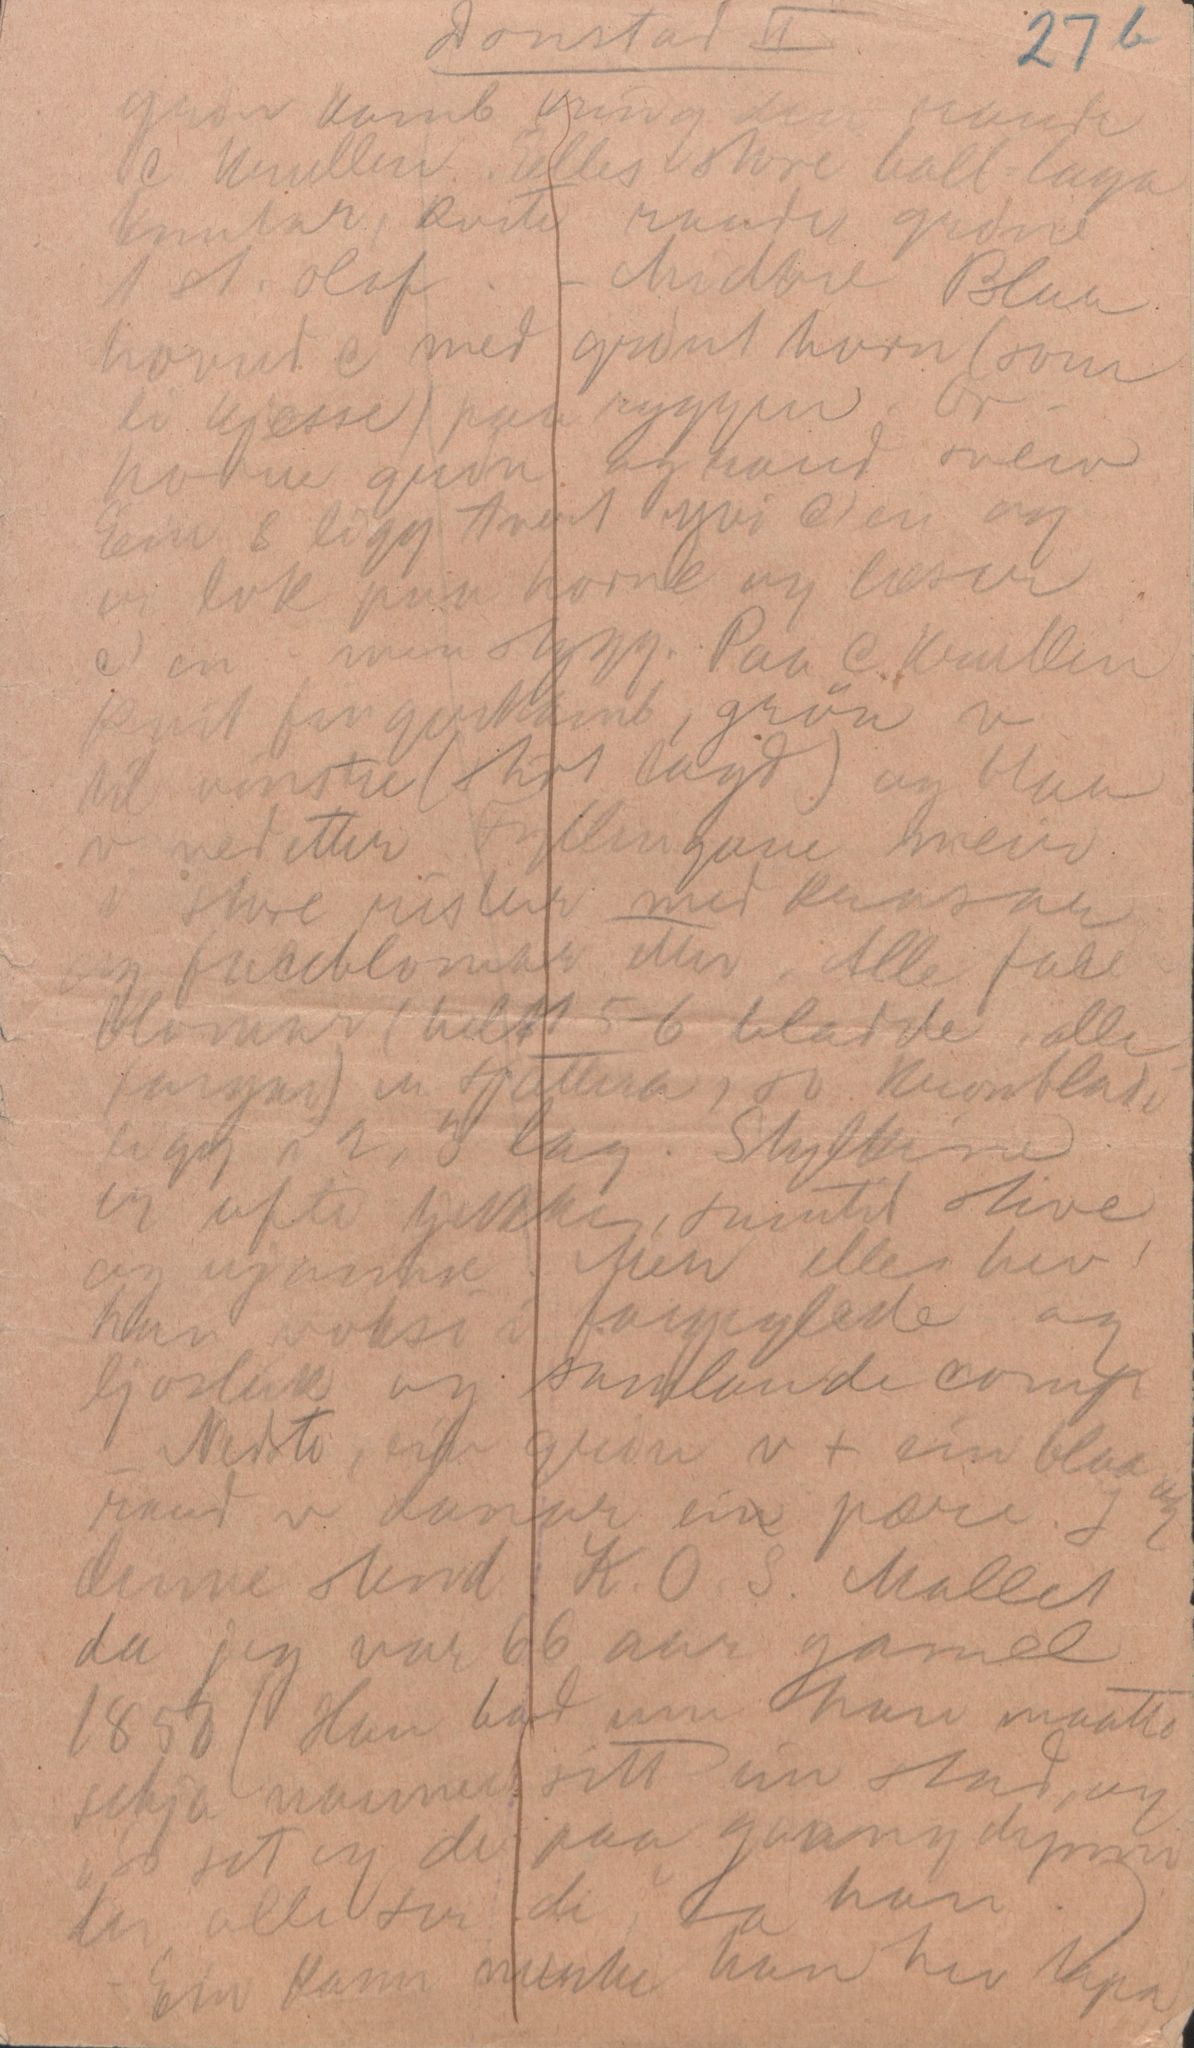 Donstad II
27 b
grøn kamb kring den raude
C krullen. Elles store ball-laga
knutar, kvite raude grøne
1 st. olaf. - Midtre Blaa
hovud C med grønt horn (som
ei kjesse) paa ryggen. Or
horne grøn og raud svew
Ein S ligg tvert yvi C'en og
er lok paa horne og læser
C'en - men stygg. Paa C krullen
kvit fingerkamb, grøn v
til vinstre (stivt lagd) og blaa
v nedetter Fyllingane meir
i store rister med krasar
og faceblomar etter. Alle face
blomar (helst 5-6 bladde, alle
fargar) er sjettera, so kronbladi
ligg i 2, 3 lag. Stylkarne
er ofte tjukke, sumtid stive
og ujamne. Men elles hev
han vokse i fargeglede og
ljosleik og samlande comp
- Nedsto, ein grøn v + ein blaa og
raud v danar ein pære. I
denne stend K. O. S. Mallet
da jeg var 66 aar gamel
1858 (Han bad um han maatte
setja namnet sitt ein stad, og
so set eg de paa gaangdynn
der alle ser de, sa han.)
- Ein kann merke han hev tapa